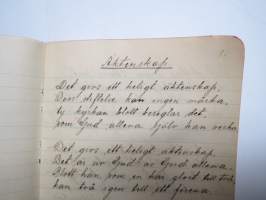 Äktenskap.
Det givs ett heligt äktenskap.
Dess stiftelse kan ingen märka,
ty kyrkan blott beseglar det,
som Gud allena själv kan verka.
Det givs ett heligt äktenskap.
Det är av Gud, av Gud allena.
Blott han som en har gjort till två,
kan två igen till ett förena.